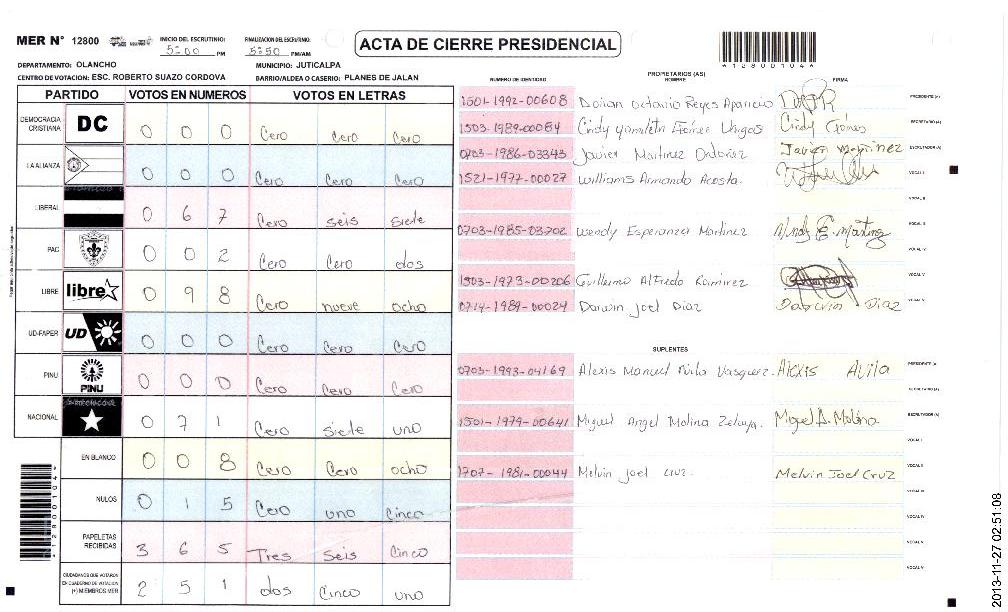 MER N° 12800 INICIO DEL ESCRUTINIO: 5:00 PM FINALIZACION DEL ESCRUTINIO: 5:50 PM/AM
ACTA DE CIERRE PRESIDENCIAL
*12800104*
DEPARTAMENTO: OLANCHO MUNICIPIO: JUTICALPA
CENTRO DE VOTACION: ESC. ROBERTO SUAZO CORDOVA BARRIO/ALDEA O CASERIO: PLANES DE JALAN
PARTIDO VOTOS EN NUMEROS VOTOS EN LETRAS
DEMOCRACIA CRISTIANA DC 0 0 0 Cero Cero Cero
LA ALIANZA 0 0 0 Cero Cero Cero
LIBERAL 0 6 7 Cero seis siete
PAC 0 0 2 Cero Cero dos
LIBRE libre 0 9 8 Cero nueve ocho
UD-FAPER UD 0 0 0 Cero Cero Cero
PINU PINU 0 0 0 Cero Cero Cero
NACIONAL 0 7 1 Cero siete uno
EN BLANCO 0 0 8 Cero Cero ocho
NULOS 0 1 5 Cero uno Cinco
PAPELETAS RECIBIDAS 3 6 5 Tres seis Cinco
CIUDADANOS QUE VOTARON EN CUADERNO DE VOTACION (+) MIEMBROS MER 2 5 1 dos Cinco uno
*12800104*
PROPIETARIOS (AS)
NUMERO DE IDENTIDAD NOMBRE FIRMA
1501-1992-00608 Dorian Octavio Reyes Aparicio PRESIDENTE (A)
1503-1989-00084 Cindy Gómez SECRETARIO (A)
0703-1986-03343 Javier Martinez Ordoñez Javier Martinez ESCRUTADOR (A)
1521-1977-00027 Williams Armando Acosta. VOCAL I
VOCAL II
0703-1985-03202 Wendy Esperanza Martinez VOCAL III
VOCAL IV
1503-1973-00206 Guillermo Alfredo Ramirez VOCAL V
0714-1989-00024 Darwin Joel Diaz Darwin Diaz
SUPLENTES
0703-1993-04169 Alexis Manuel Avila Vasquez. Alexis Avila PRESIDENTE (A)
SECRETARIO (A)
1501-1979-00641 Miguel Angel Molina Zelaya. Miguel A. Molina ESCRUTADOR (A)
VOCAL I
1707-1981-00044 Melvin Joel Cruz. Melvin Joel Cruz VOCAL II
VOCAL III
VOCAL IV
VOCAL V
2013-11-27 02:51:08